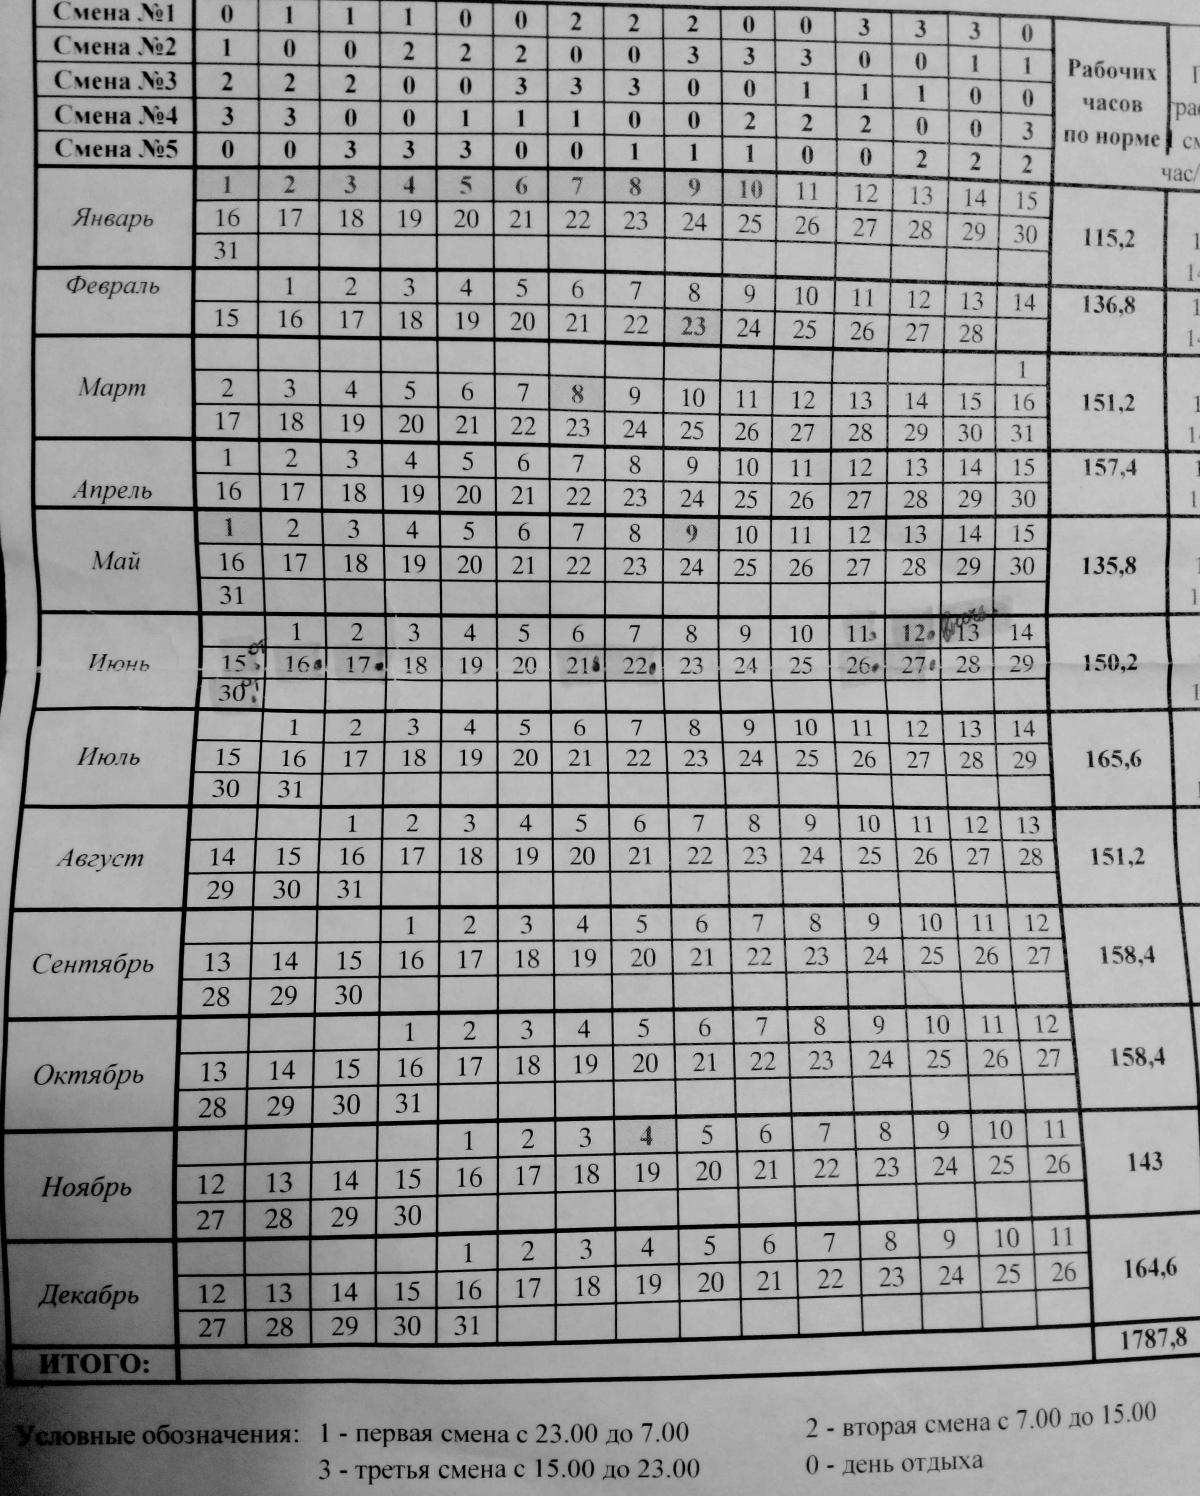 Смена №1 0 1 1 1 0 0 2 2 2 0 0 3 3 3 0
Смена №2 1 0 0 2 2 2 0 0 3 3 3 0 0 1 1
Смена №3 2 2 2 0 0 3 3 3 0 0 1 1 1 0 0
Смена №4 3 3 0 0 1 1 1 0 0 2 2 2 0 0 3
Смена №5 0 0 3 3 3 0 0 1 1 1 0 0 2 2 2
Рабочих
часов
по норме
час/
Январь
1 2 3 4 5 6 7 8 9 10 11 12 13 14 15
16 17 18 19 20 21 22 23 24 25 26 27 28 29 30
31
115,2
Февраль
1 2 3 4 5 6 7 8 9 10 11 12 13 14
15 16 17 18 19 20 21 22 23 24 25 26 27 28
136,8
Март
1
2 3 4 5 6 7 8 9 10 11 12 13 14 15 16
17 18 19 20 21 22 23 24 25 26 27 28 29 30 31
151,2
Апрель
1 2 3 4 5 6 7 8 9 10 11 12 13 14 15
16 17 18 19 20 21 22 23 24 25 26 27 28 29 30
157,4
Май
1 2 3 4 5 6 7 8 9 10 11 12 13 14 15
16 17 18 19 20 21 22 23 24 25 26 27 28 29 30
31
135,8
Июнь
1 2 3 4 5 6 7 8 9 10 11 12 13 14
15 16 17 18 19 20 21 22 23 24 25 26 27 28 29
30
150,2
Июль
1 2 3 4 5 6 7 8 9 10 11 12 13 14
15 16 17 18 19 20 21 22 23 24 25 26 27 28 29
30 31
165,6
Август
1 2 3 4 5 6 7 8 9 10 11 12 13
14 15 16 17 18 19 20 21 22 23 24 25 26 27 28
29 30 31
151,2
Сентябрь
1 2 3 4 5 6 7 8 9 10 11 12
13 14 15 16 17 18 19 20 21 22 23 24 25 26 27
28 29 30
158,4
Октябрь
1 2 3 4 5 6 7 8 9 10 11 12
13 14 15 16 17 18 19 20 21 22 23 24 25 26 27
28 29 30 31
158,4
Ноябрь
1 2 3 4 5 6 7 8 9 10 11
12 13 14 15 16 17 18 19 20 21 22 23 24 25 26
27 28 29 30
143
Декабрь
1 2 3 4 5 6 7 8 9 10 11
12 13 14 15 16 17 18 19 20 21 22 23 24 25 26
27 28 29 30 31
164,6
ИТОГО: 1787,8
Условные обозначения: 1 - первая смена с 23.00 до 7.00 2 - вторая смена с 7.00 до 15.00
3 - третья смена с 15.00 до 23.00 0 - день отдыха